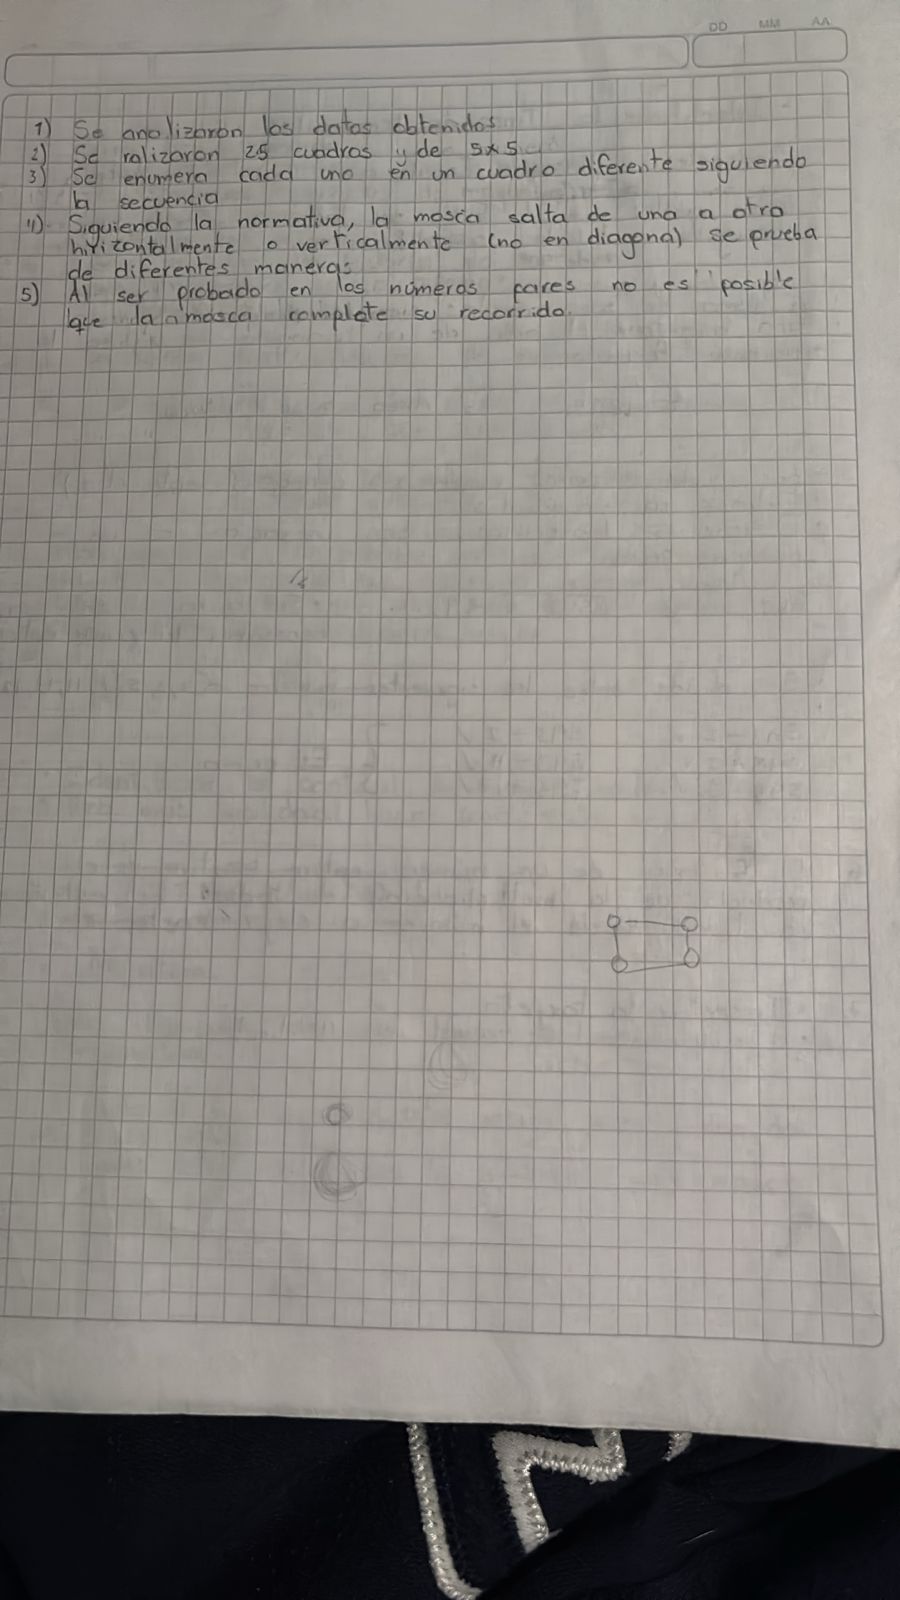 DD MM AA
1) Se analizaron los datos obtenidos
2) Se ralizaron 25 cuadros y de 5x5
3) Se enumera cada uno en un cuadro diferente siguiendo
la secuencia
4) Siguiendo la normativa, la mosca salta de una a otra
horizontalmente o verticalmente (no en diagonal) se prueba
de diferentes maneras
5) Al ser probado en los números pares no es posible
que la mosca complete su recorrido